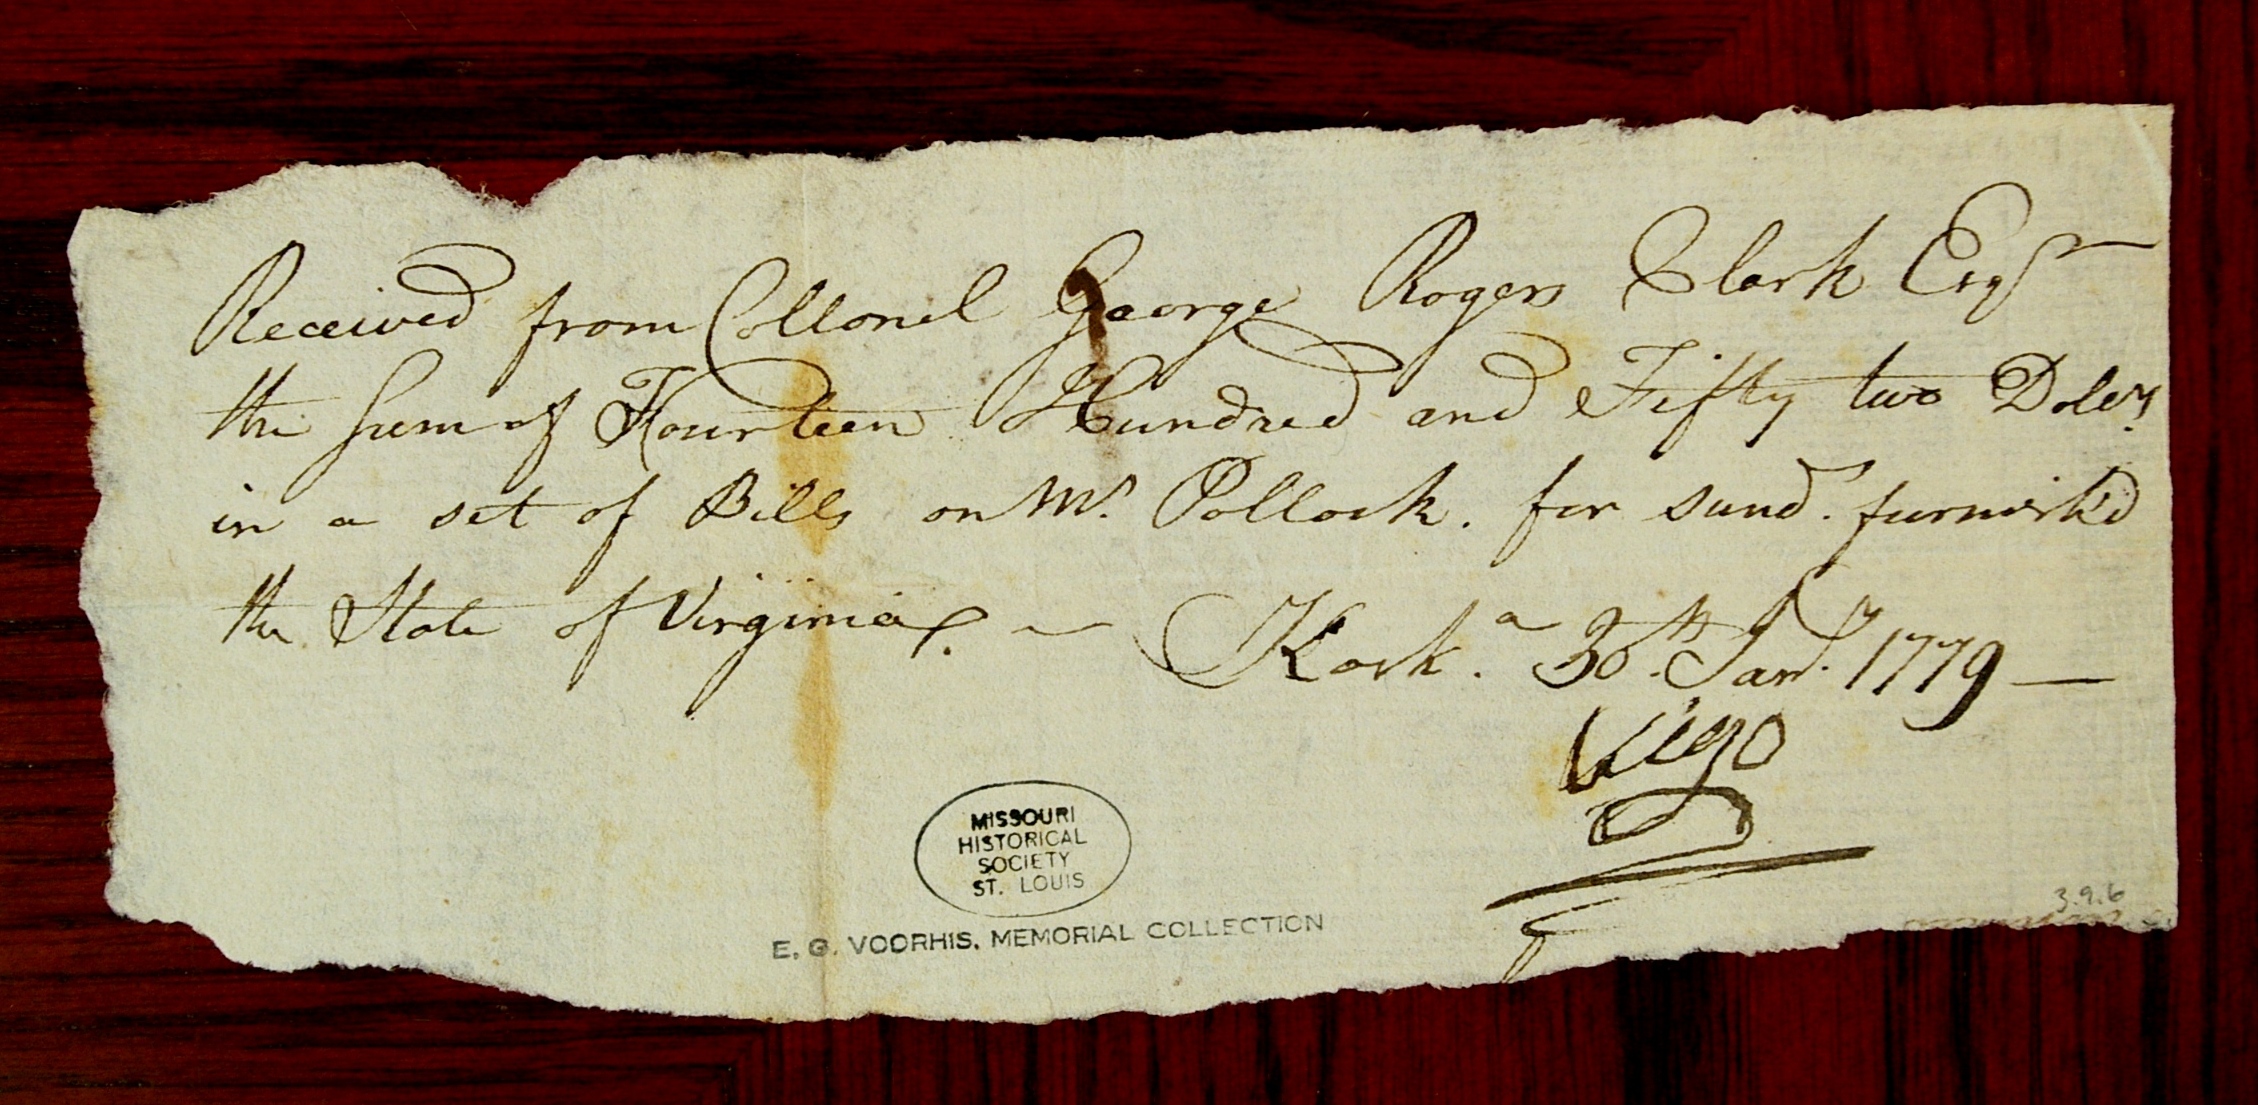 Received from Collonel George Rogers Clark Esqr
the Sum of Fourteen Hundred and Fifty two Dolers
in a set of Bills on Mr. Pollock. for sundy. furnish'd
the State of Virginia. — Kask.a 30th. Jany. 1779 —
Vigo
MISSOURI
HISTORICAL
SOCIETY
ST. LOUIS
E. G. VOORHIS, MEMORIAL COLLECTION
3.9.6